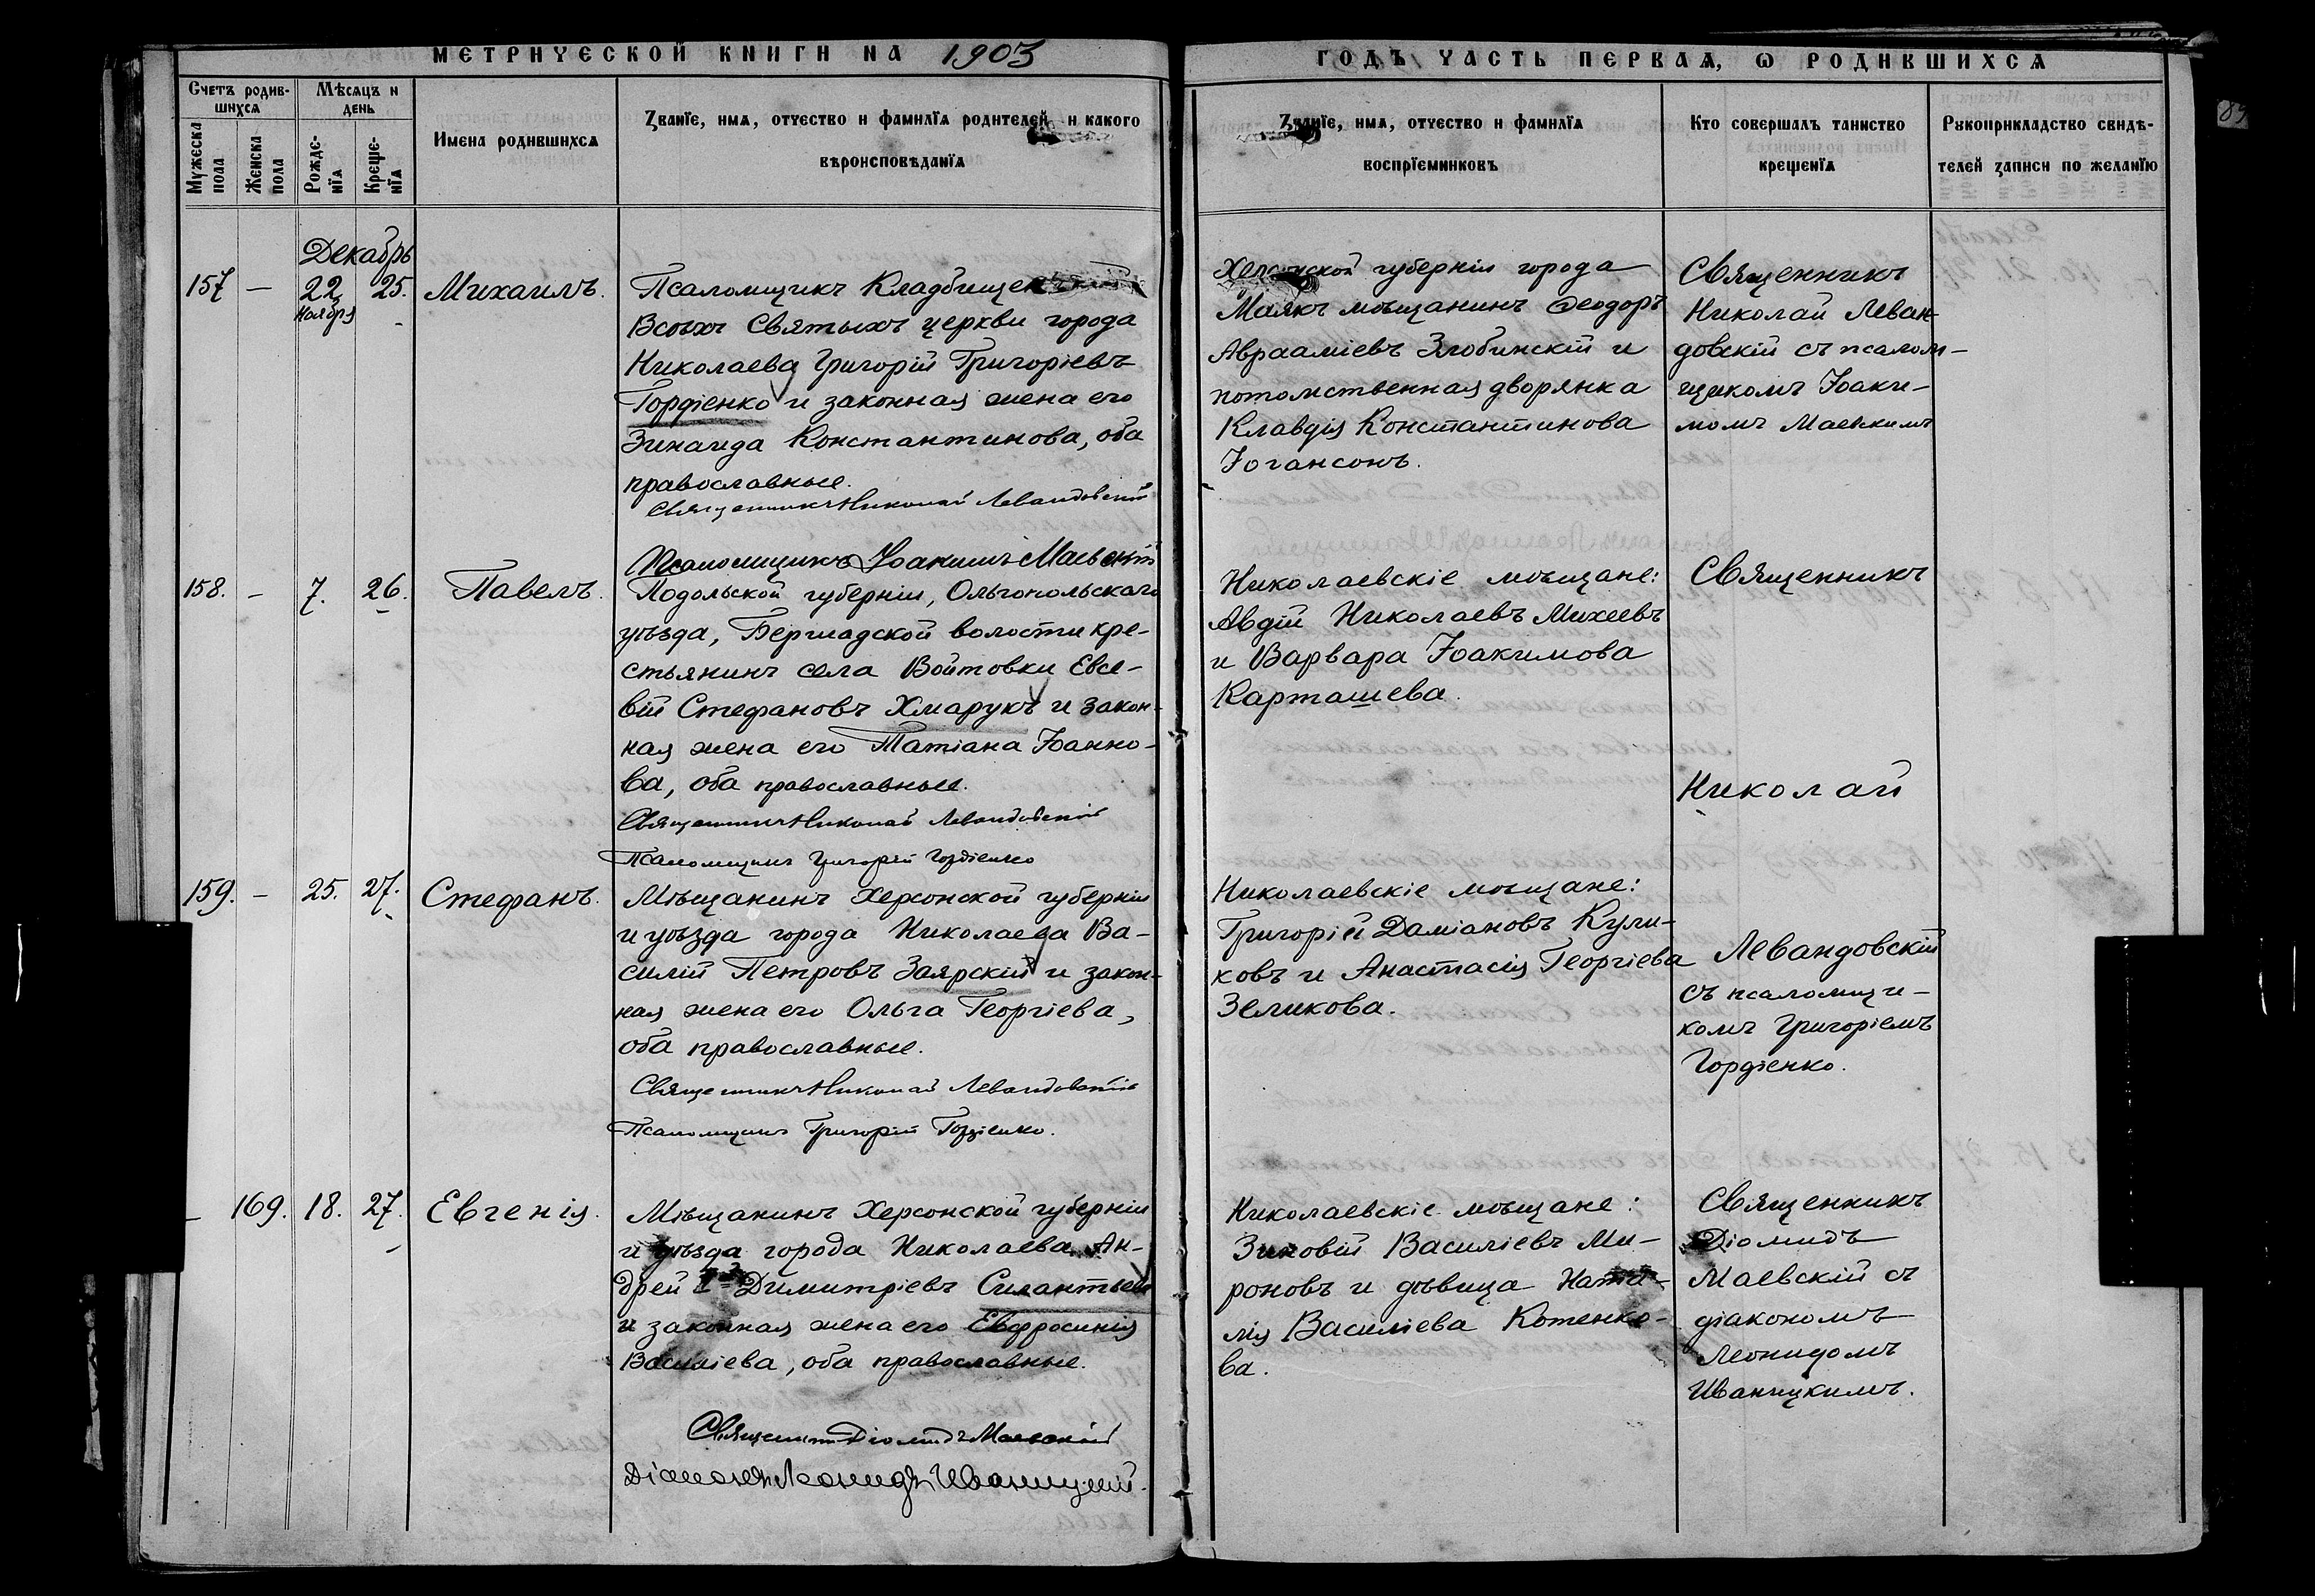 МЕТРИЧЕСКОЙ КНИГИ НА 1903
ГОДЪ ЧАСТЬ ПЕРВАЯ, Ѡ РОДИВШИХСЯ
Счетъ родив-
шихся
Мужеска
пола
Женска
пола
Мѣсяцъ и
день
Рожде-
нїя
Креще-
нїя
Имена родившихся
Званїе, имя, отчество и фамилїя родителей и какого
вѣроисповѣданїя
Званїе, имя, отчество и фамилїя
воспрїемниковъ
Кто совершалъ таинство
крещенїя
Рукоприкладство свидѣ-
телей записи по желанїю
Декабрь
157
—
22
Ноября
25.
Михаилъ.
Псаломщикъ Кладбищенской
Всѣхъ Святыхъ церкви города
Николаева Григорій Григоріевъ
Гордіенко и законная жена его
Зинаида Константинова, оба
православные.
Священникъ Николай Левандовскій
Псаломщикъ Іоакимъ Маевскій
Херсонской губерніи города
Маякъ мѣщанинъ Ѳеодоръ
Авраамiевъ Злобинскій и
потомственная дворянка
Клавдія Константинова
Іогансонъ.
Священникъ
Николай Леван-
довскій съ псалом-
щикомъ Іоаки-
момъ Маевскимъ
158.
—
7.
26.
Павелъ.
Подольской губерніи, Ольгопольскаго
уѣзда, Бершадской волости кре-
стьянинъ села Войтовки Евсе-
вій Стефановъ Хмарукъ и закон-
ная жена его Татіана Іоанно-
ва, оба православные.
Священникъ Николай Левандовскій
Псаломщикъ Григорій Гордіенко
Николаевскіе мѣщане:
Авдій Николаевъ Михеевъ
и Варвара Іоакимова
Карташева.
Священникъ
Николай
159.
—
25.
27.
Стефанъ.
Мѣщанинъ Херсонской губерніи
и уѣзда города Николаева Ва-
силій Петровъ Заярскій и закон-
ная жена его Ольга Георгіева,
оба православные.
Священникъ Николай Левандовскій
Псаломщикъ Григорій Гордіенко.
Николаевскіе мѣщане:
Григорій Даміановъ Кули-
ковъ и Анастасія Георгіева
Зеликова.
Левандовскій
съ псаломщи-
комъ Григоріемъ
Гордіенко.
—
169.
18.
27.
Евгенія.
Мѣщанинъ Херсонской губерніи
и уѣзда города Николаева Ан-
дрей Димитріевъ Силантьевъ
и законная жена его Евфросинія
Василіева, оба православные.
Священникъ Діомидъ Маевскій
Діаконъ Леонидъ Иваницкій.
Николаевскіе мѣщане:
Зиновій Василіевъ Ми-
роновъ и дѣвица Ната-
лія Василіева Котенко-
ва.
Священникъ
Діомидъ
Маевскій съ
діакономъ
Леонидомъ
Иваницкимъ.